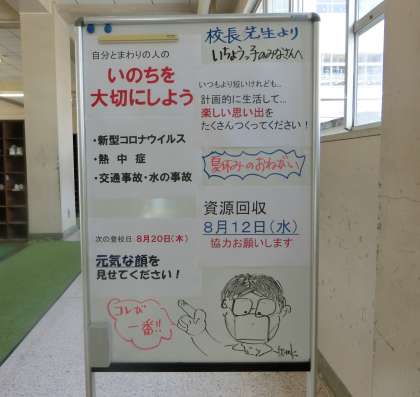 校長先生より
いちょうっ子のみなさんへ
自分とまわりの人の
いのちを
大切にしよう
・新型コロナウイルス
・熱中症
・交通事故・水の事故
次の登校日 8月20日(木)
元気な顔を
見せてください！
コレが
一番!!
いつもより短いけれど…
計画的に生活して…
楽しい思い出を
たくさんつくってください！
夏休みのおねがい
資源回収
8月12日(水)
協力お願いします